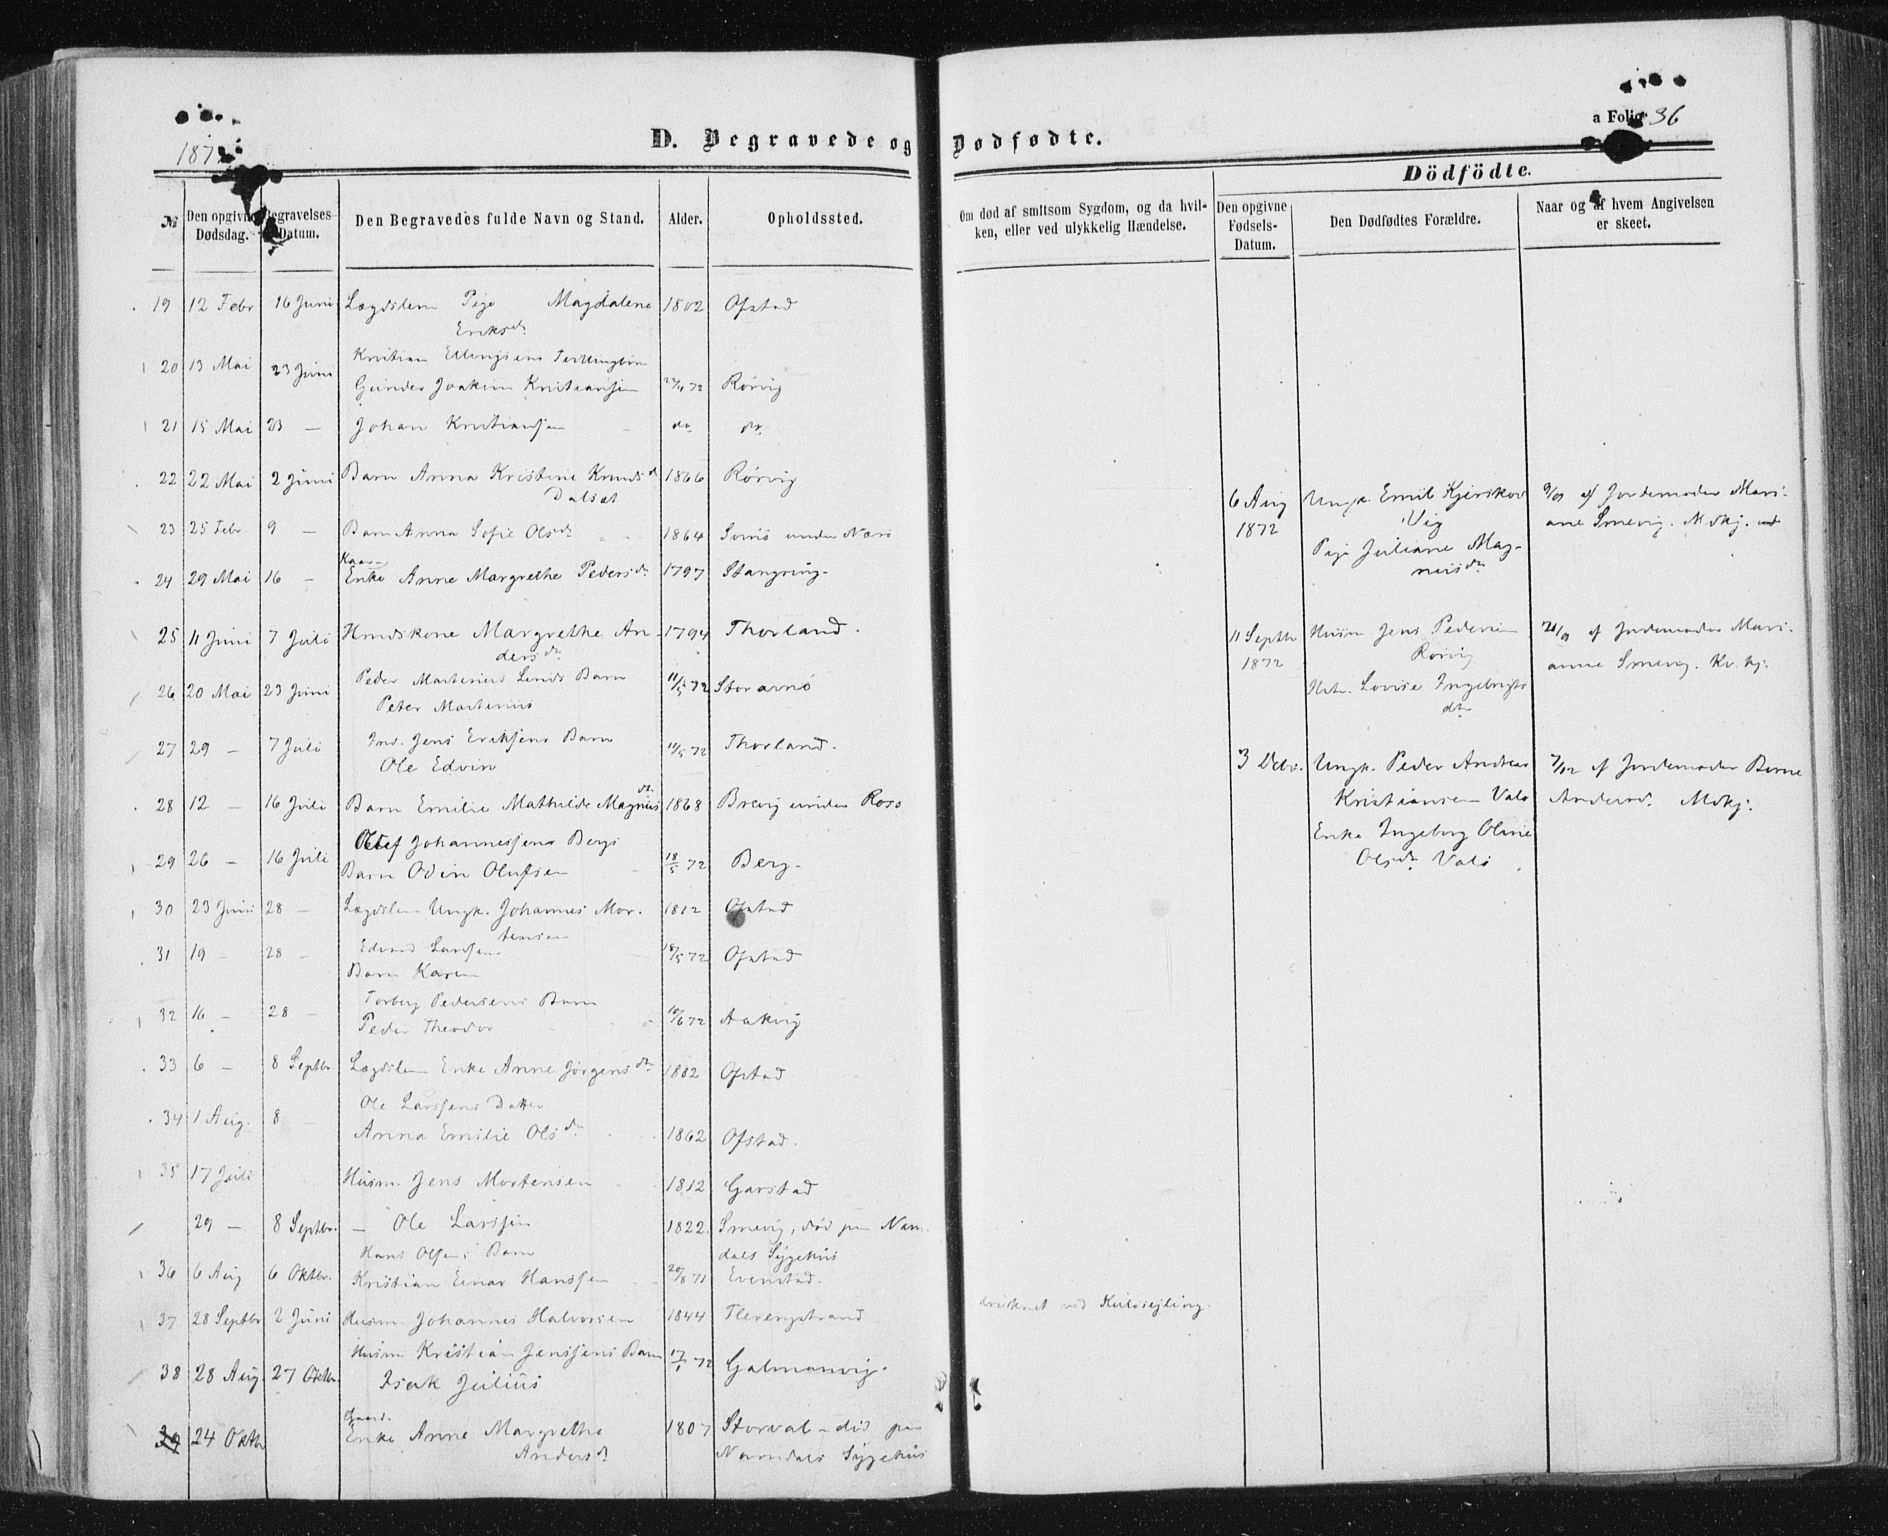 187
D. Begravede og Dødfødte.
a Folio 36
Dödfödte.
№
Den opgivne Dødsdag.
Begravelses-Datum.
Den Begravedes fulde Navn og Stand.
Alder.
Opholdssted.
Om død af smitsom Sygdom, og da hvil-
ken, eller ved ulykkelig Hændelse.
Den opgivne Fødsels-Datum.
Den Dødfødtes Forældre.
Naar og af hvem Angivelsen
er skeet.
19 12 Febr 16 Juni Lægdslem Pige Magdalene 1802 Ofstad
Eriksdr
20 13 Mai 23 Juni Kristian Ellingsens Tvillingbørn
Gunder Joakim Kristiansen 72 Rørvig
21 15 Mai 23 — Johan Kristiansen do do
22 22 Mai 2 Juni Barn Anna Kristine Knuds d 1866 Rørvig
Dalset
23 25 Febr 9 — Barn Anna Sofie Olsdr 1864 Svinö under Nærö
24 29 Mai 16 — Kaar-
Enke Anne Margrethe Pedersdr 1797
25 11 Juni 7 Juli Hmdskone Margrethe An- 1794 Thorland.
dersdr
26 20 Mai 23 Juni Peder Martinus Lunds Barn 11/5 72
Peter Martinus
27 29 — 7 Juli Ind. Jens Eriksens Barn 11/5 72 Thorland.
Ole Edvin
28 12 — 16 Juli Barn Emilie Mathilde Magnusdr. 1868 Brevig under
29 26 — 16 Juli Johannessens Bergs
Barn Odin Olufsen 18/5 72 Berg.
30 23 Juni 28 — Lægdslem Ungk. Johannes Mor- 1812 Ofstad
tensen
31 19 — 28 — Edvard Larssens 18/5 72 Ofstad
Barn Karen
32 16 — 28 — Torberg Pedersens Barn
Peder Theodor 10/6 72 Aakvig
33 6 — 8 Septbr. Lægdslem Enke Anne Jørgensdr 1802 Ofstad
34 1 Aug. 8 — Ole Larssens Datter
Anna Emilie Olsdr 1862 Ofstad.
35 17 Juli Husm. Jens Mortensen 1812 Garstad
29 — 8 Septbr. — Ole Larssen 1822. Smevig, død paa Nam-
dals Sygehus
36 6 Aug 6 Oktbr. Hans Olsens Barn
Kristian Einar Hanssen 20/8 71 Evenstad.
37 28 Septbr 2 Juni Husm. Johannes Halvorsen 1844 Flerengstrand druknet ved Kuldsejling.
38 28 Aug. 27 Oktbr. Husm Kristian Jenssens Barn 17/1 72 Galmanvig.
Isak Julius
39 24 Oktbr Gaard.
Enke Anne Margrethe 1807 død paa
Andersdr Namdals Sygehus
6 Aug
1872
Ungk. Emil
Vig
Pige Juliane Mag-
nusdr
9/9 af Jordemoder Mari-
ane Smevig. Mdkj.
11 Septbr
1872
Husm Jens Pedersen
Rørvig
Hstr. Lovise Ingebrigts
dtr
21/9 af Jordemoder Mari-
anne Smevig. Kv. kj.
3 Debr.
Ungk. Peder Andreas
Kristiansen Valø
Enke Ingeborg Oline
Olsdr Valø
7/12 af Jordemoder
Mdkj.